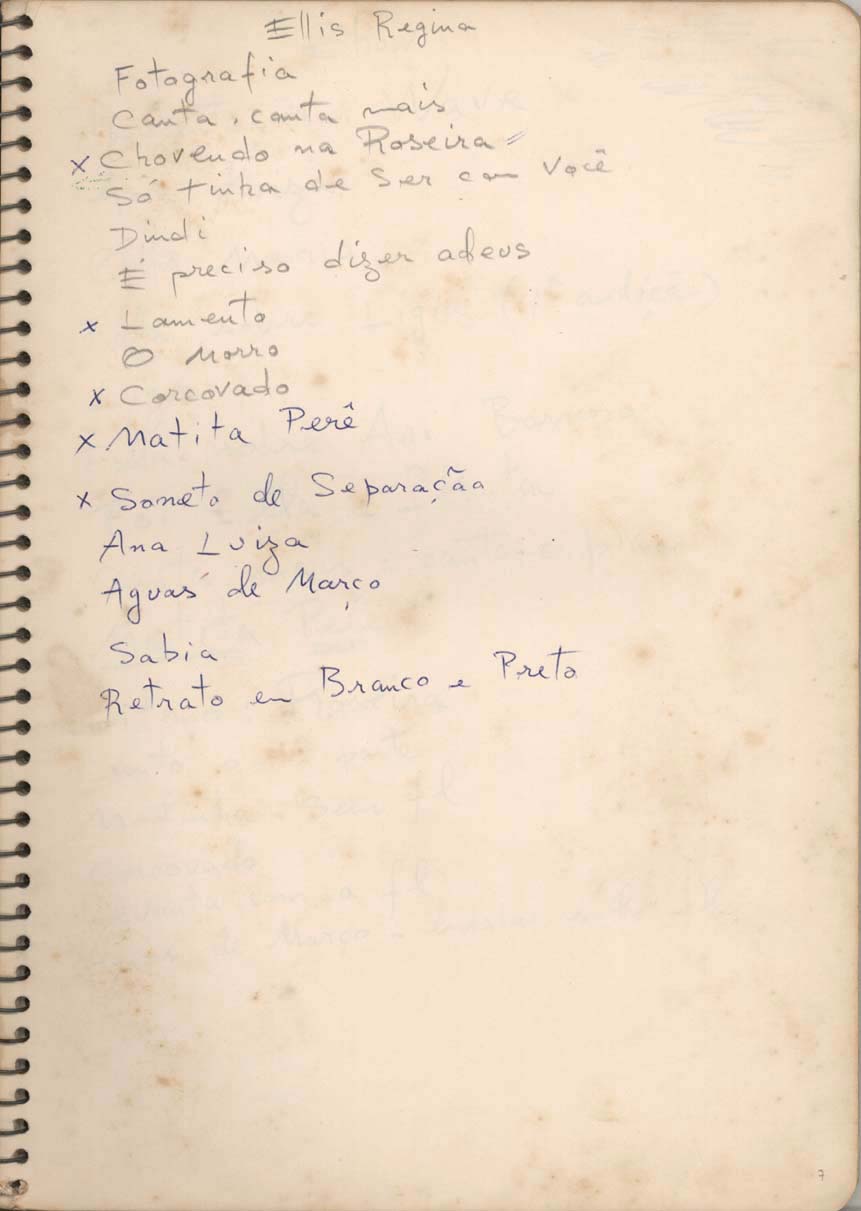 Ellis Regina
Fotografia
Canta, canta mais
x Chovendo na Roseira =
Só tinha de Ser com Você
Dindi
É preciso dizer adeus
x Lamento
O Morro
x Corcovado
x Matita Perê
x Soneto de Separação
Ana Luiza
Aguas de Março
Sabia
Retrato em Branco e Preto
7